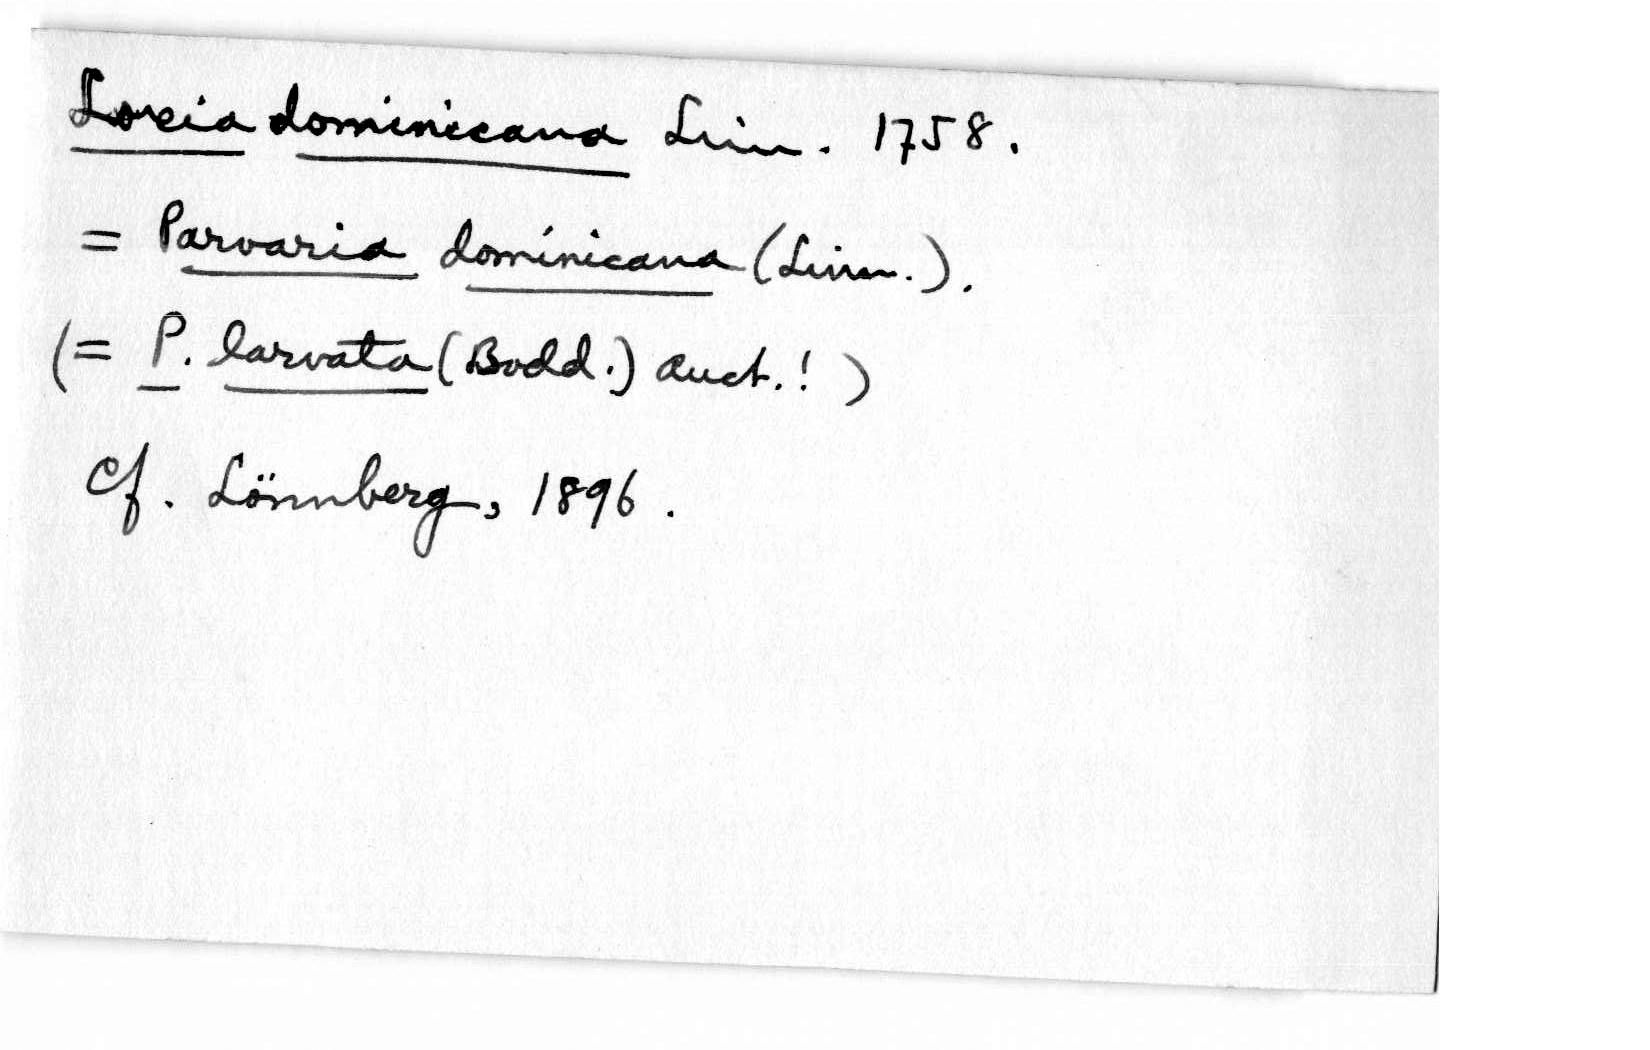 Loxia dominicana Linn. 1758.
= Paroaria dominicana (Linn.).
(= P. larvata (Bodd.) auct.!)
Cf. Lönnberg, 1896.